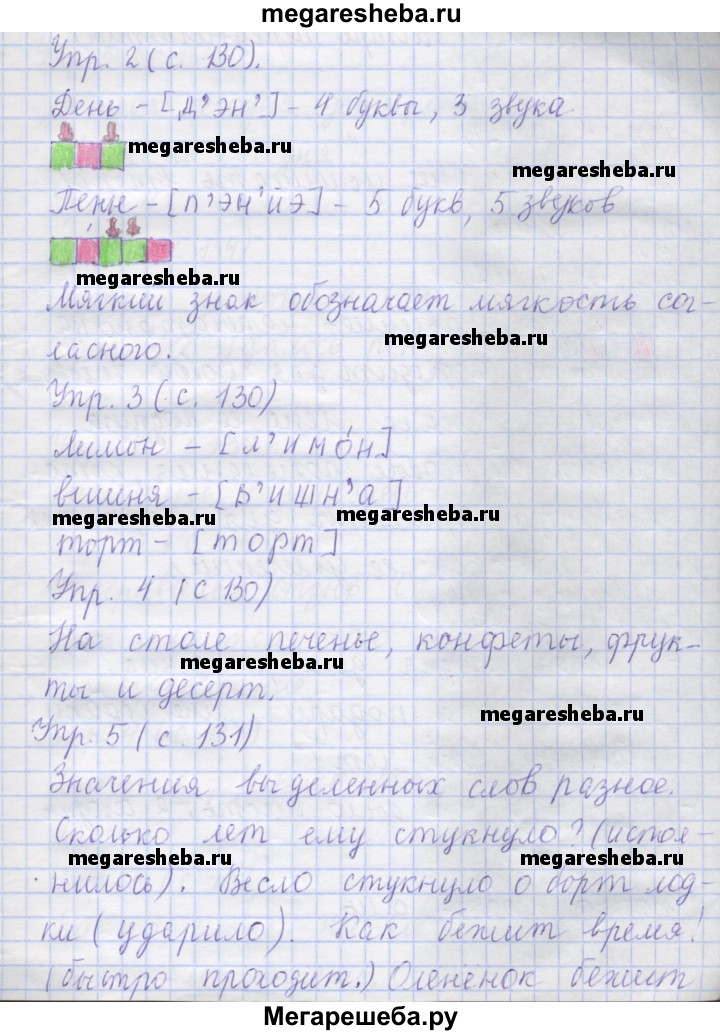 megaresheba.ru
Упр. 2 (с. 130).
День - [д'эн'] - 4 буквы, 3 звука
megaresheba.ru
megaresheba.ru
Пенн - [п'эн'йэ] - 5 букв, 5 звуков
megaresheba.ru
Мягкий знак обозначает мягкость сог-
megaresheba.ru
ласного.
Упр. 3 (с. 130)
Лимон - [л'имо́н]
вишня - [в'ишн'а]
megaresheba.ru
megaresheba.ru
торт - [торт]
Упр. 4 (с 130)
На столе печенье, конфеты, фрук-
megaresheba.ru
ты и десерт.
megaresheba.ru
Упр. 5 (с. 131)
Значения выделенных слов разное.
Сколько лет ему стукнуло? (испол-
megaresheba.ru
megaresheba.ru
нилось). Весло стукнуло о борт лод-
ки (ударило). Как бежит время!
(быстро проходит.) Олененок бежит
Мегарешеба.ру